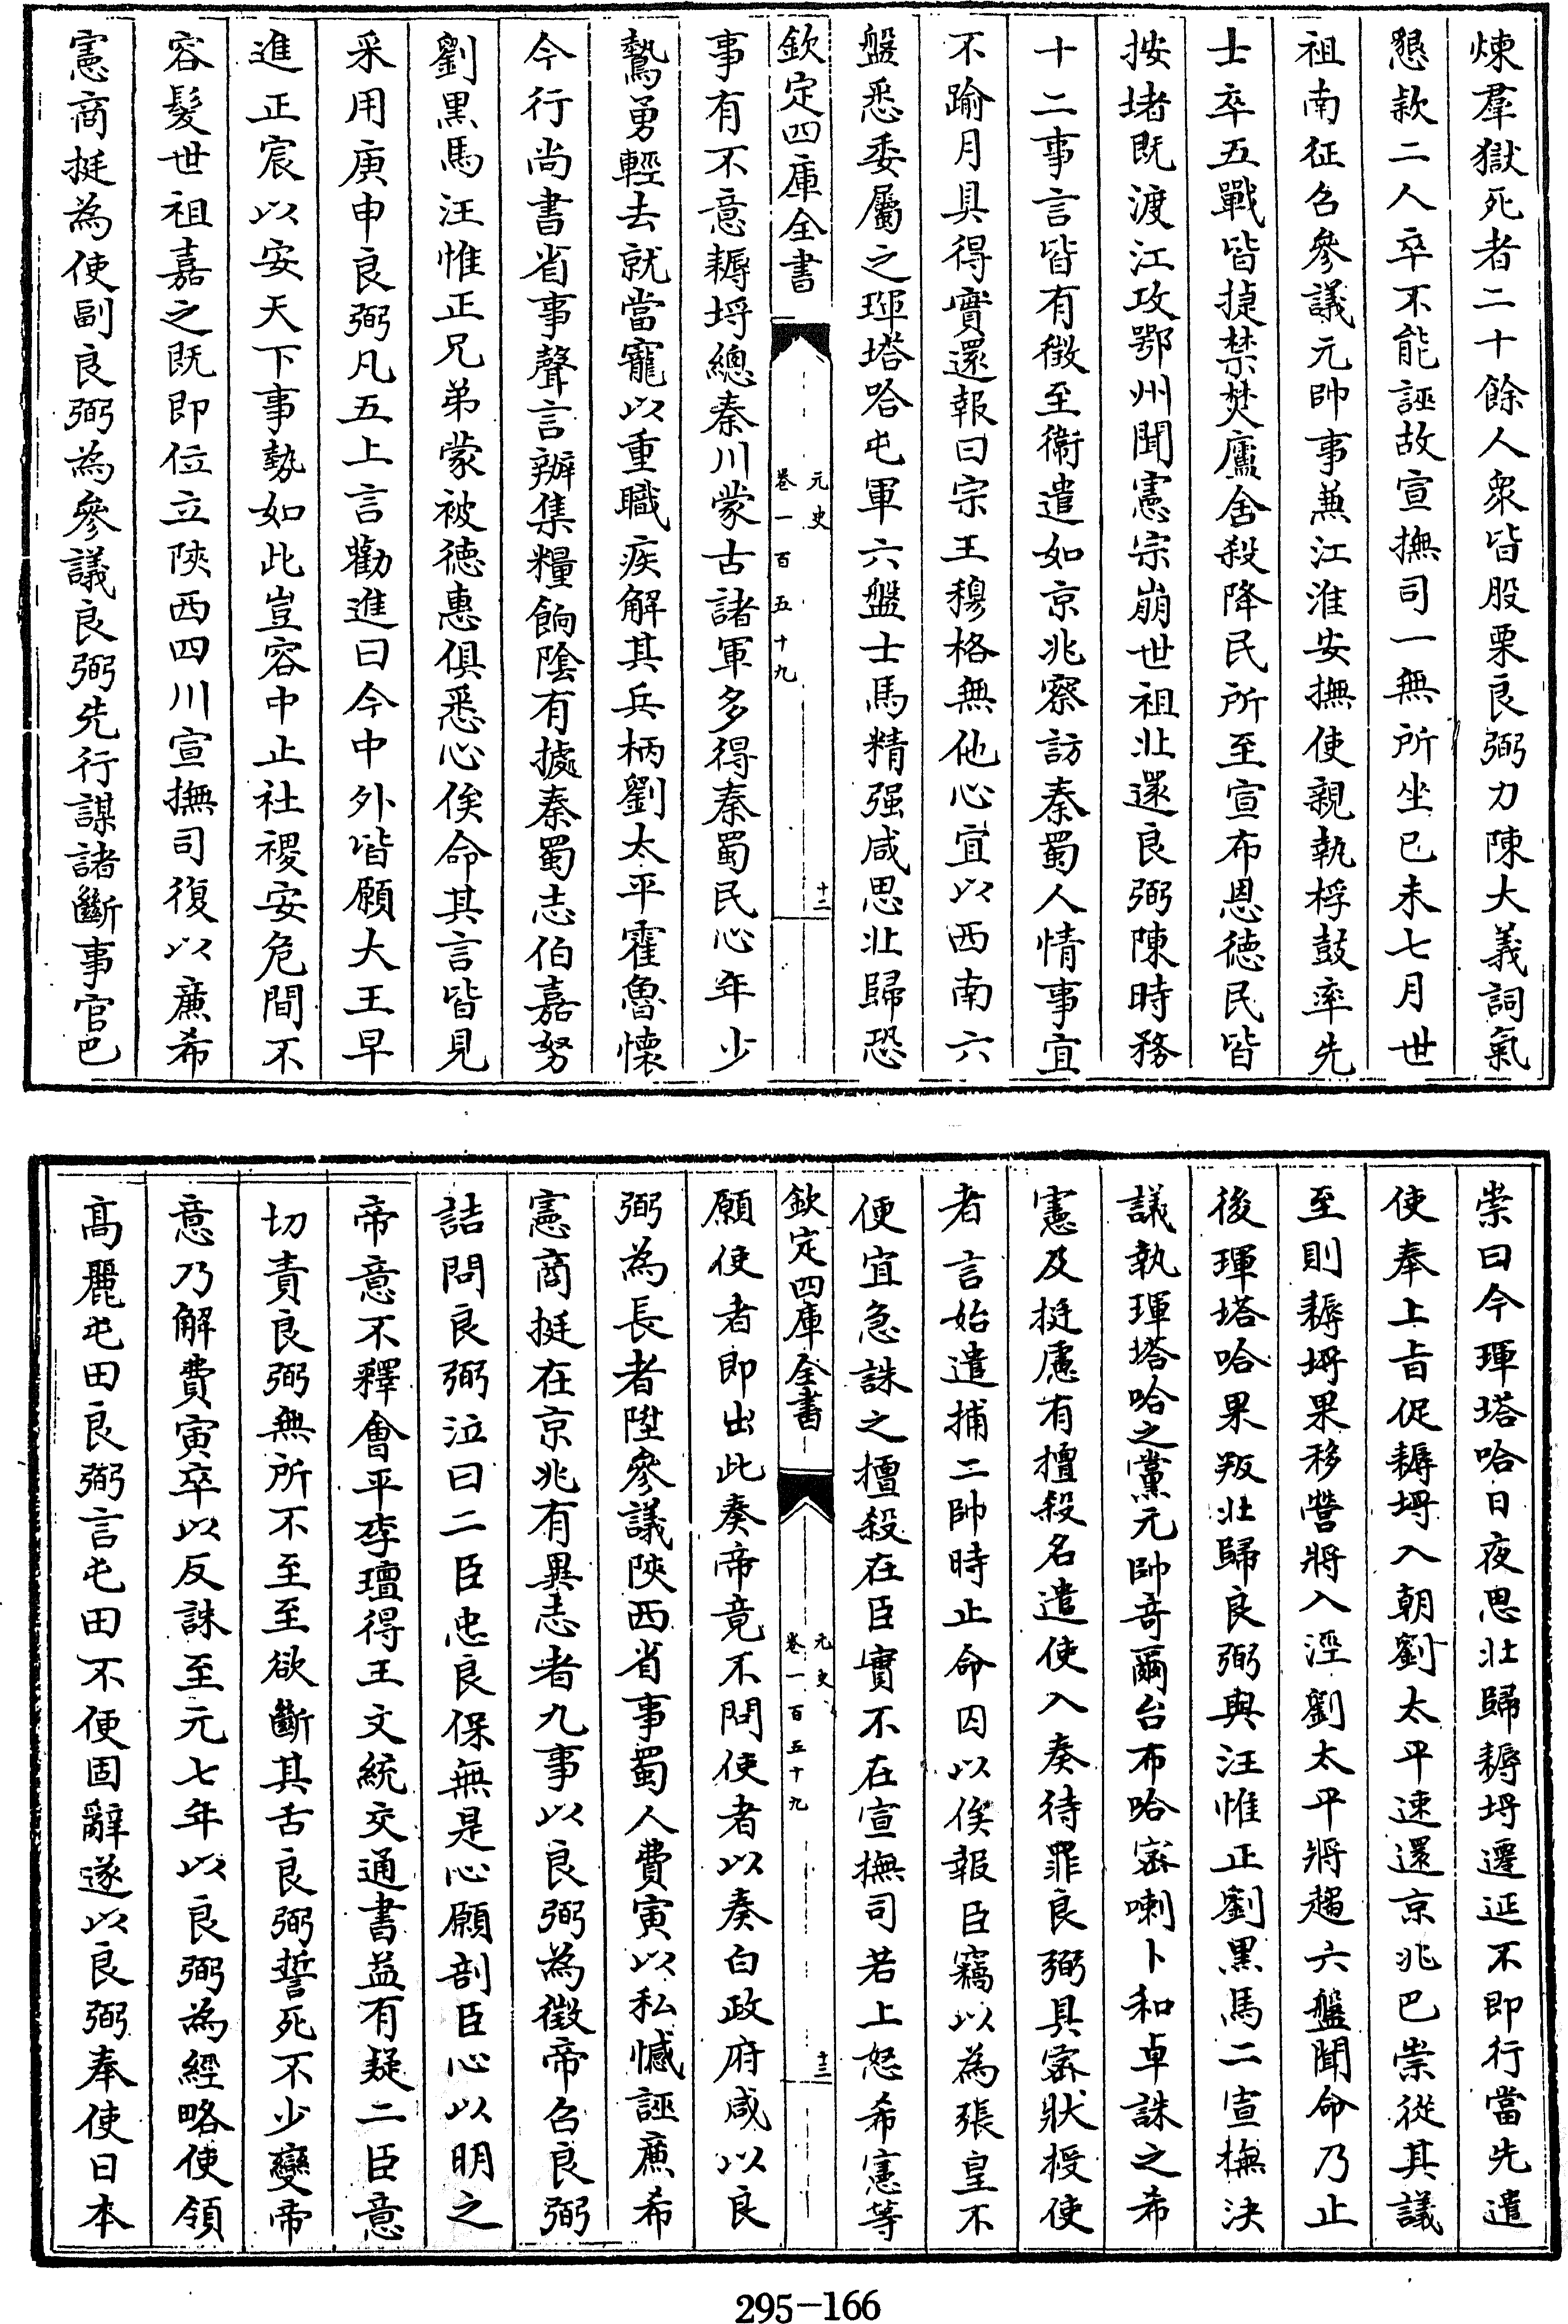 煉羣獄死者二十餘人衆皆股栗良弼力陳大義詞氣
懇款二人卒不能誣故宣撫司一無所坐己未七月世
祖南征召參議元帥事兼江淮安撫使親執桴鼓率先
士卒五戰皆捷禁焚廬舍殺降民所至宣布恩德民皆
按堵既渡江攻鄂州聞憲宗崩世祖北還良弼陳時務
十二事言皆有徵至衞遣如京兆察訪秦蜀人情事宜
不踰月具得實還報曰宗王穆格無他心宜以西南六
盤悉委屬之琿塔哈屯軍六盤士馬精强咸思北歸恐
欽定四庫全書
元史
卷一百五十九
十二
事有不意耨埒總秦川蒙古諸軍多得秦蜀民心年少
鷙勇輕去就當寵以重職疾解其兵柄劉太平霍魯懷
今行尚書省事聲言辦集糧餉陰有據秦蜀志伯嘉努
劉黑馬汪惟正兄弟蒙被德惠俱悉心俟命其言皆見
采用庚申良弼凡五上言勸進曰今中外皆願大王早
進正宸以安天下事勢如此豈容中止社稷安危間不
容髮世祖嘉之既即位立陝西四川宣撫司復以廉希
憲商挺為使副良弼為參議良弼先行謀諸斷事官巴
崇曰今琿塔哈日夜思北歸耨埒遷延不即行當先遣
使奉上旨促耨埒入朝劉太平速還京兆巴崇從其議
至則耨埒果移營將入涇劉太平將趨六盤聞命乃止
後琿塔哈果叛北歸良弼與汪惟正劉黑馬二宣撫決
議執琿塔哈之黨元帥奇爾台布哈密喇卜和卓誅之希
憲及挺慮有擅殺名遣使入奏待罪良弼具密狀授使
者言始遣捕二帥時止命囚以俟報臣竊以為張皇不
便宜急誅之擅殺在臣實不在宣撫司若上怒希憲等
欽定四庫全書
元史
卷一百五十九
十三
願使者即出此奏帝竟不問使者以奏白政府咸以良
弼為長者陞參議陝西省事蜀人費寅以私憾誣廉希
憲商挺在京兆有異志者九事以良弼為徵帝召良弼
詰問良弼泣曰二臣忠良保無是心願剖臣心以明之
帝意不釋會平李璮得王文統交通書益有疑二臣意
切責良弼無所不至至欲斷其舌良弼誓死不少變帝
意乃解費寅卒以反誅至元七年以良弼為經略使領
高麗屯田良弼言屯田不便固辭遂以良弼奉使日本
295-166